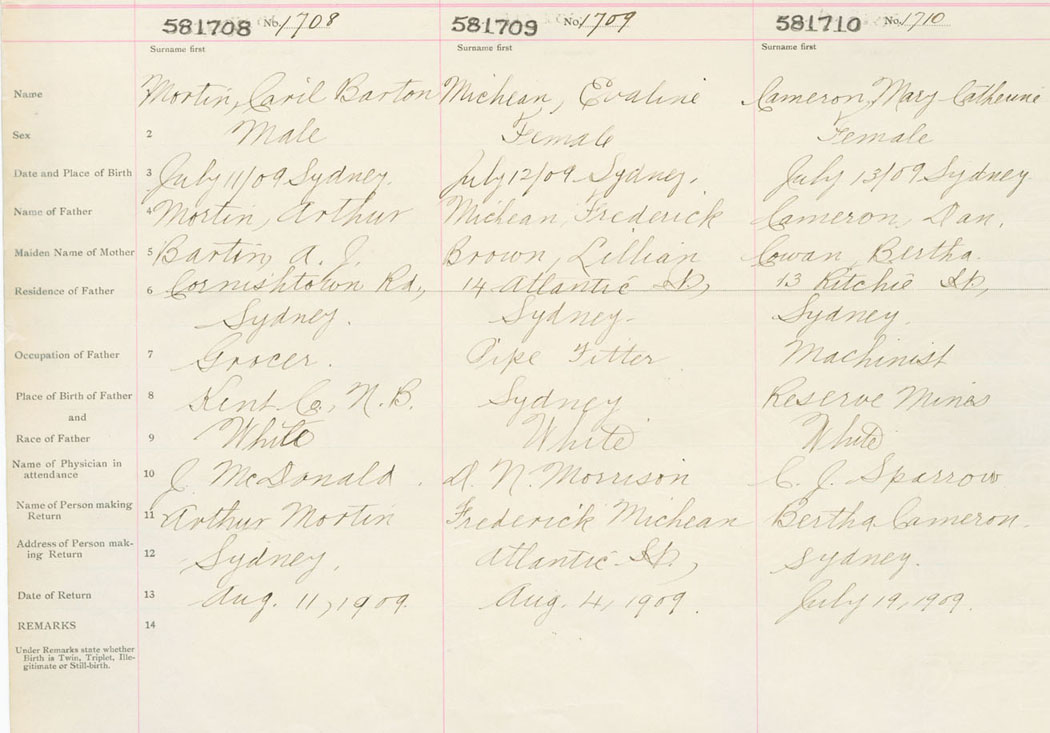 581708 No. 1708 581709 No. 1709 581710 No. 1710
Surname first Surname first Surname first
Name Mortin, Caril Barton Michean, Evaline Cameron, Mary Catherine
Sex 2 Male Female Female
Date and Place of Birth 3 July 11/09 Sydney. July 12/09 Sydney. July 13/09 Sydney
Name of Father 4 Mortin, Arthur Michean, Frederick Cameron, Dan.
Maiden Name of Mother 5 Bartin, A. J. Brown, Lillian Cowan, Bertha.
Residence of Father 6 Cornishtown Rd., 14 Atlantic St., 13 Ritchie St.,
Sydney. Sydney. Sydney.
Occupation of Father 7 Grocer. Pipe Fitter Machinist
Place of Birth of Father 8 Kent Co., N. B. Sydney Reserve Mines
and
Race of Father 9 White White White
Name of Physician in
attendance 10 J. McDonald. D. N. Morrison C. J. Sparrow
Name of Person making
Return 11 Arthur Mortin Frederick Michean Bertha Cameron.
Address of Person mak-
ing Return 12 Sydney. Atlantic St., Sydney.
Date of Return 13 Aug. 11, 1909. Aug. 4, 1909. July 19, 1909.
REMARKS 14
Under Remarks state whether
Birth is Twin, Triplet, Ille-
gitimate or Still-birth.